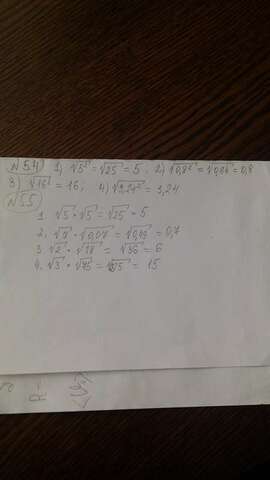 N 5.4 1) √5² = √25 = 5, 2) √0,8² = √0,64 = 0,8
3) √16² = 16; 4) √3,24² = 3,24
N 5.5
1. √5 · √5 = √25 = 5
2. √7 · √0,07 = √0,49 = 0,7
3. √2 · √18 = √36 = 6
4. √3 · √75 = √225 = 15